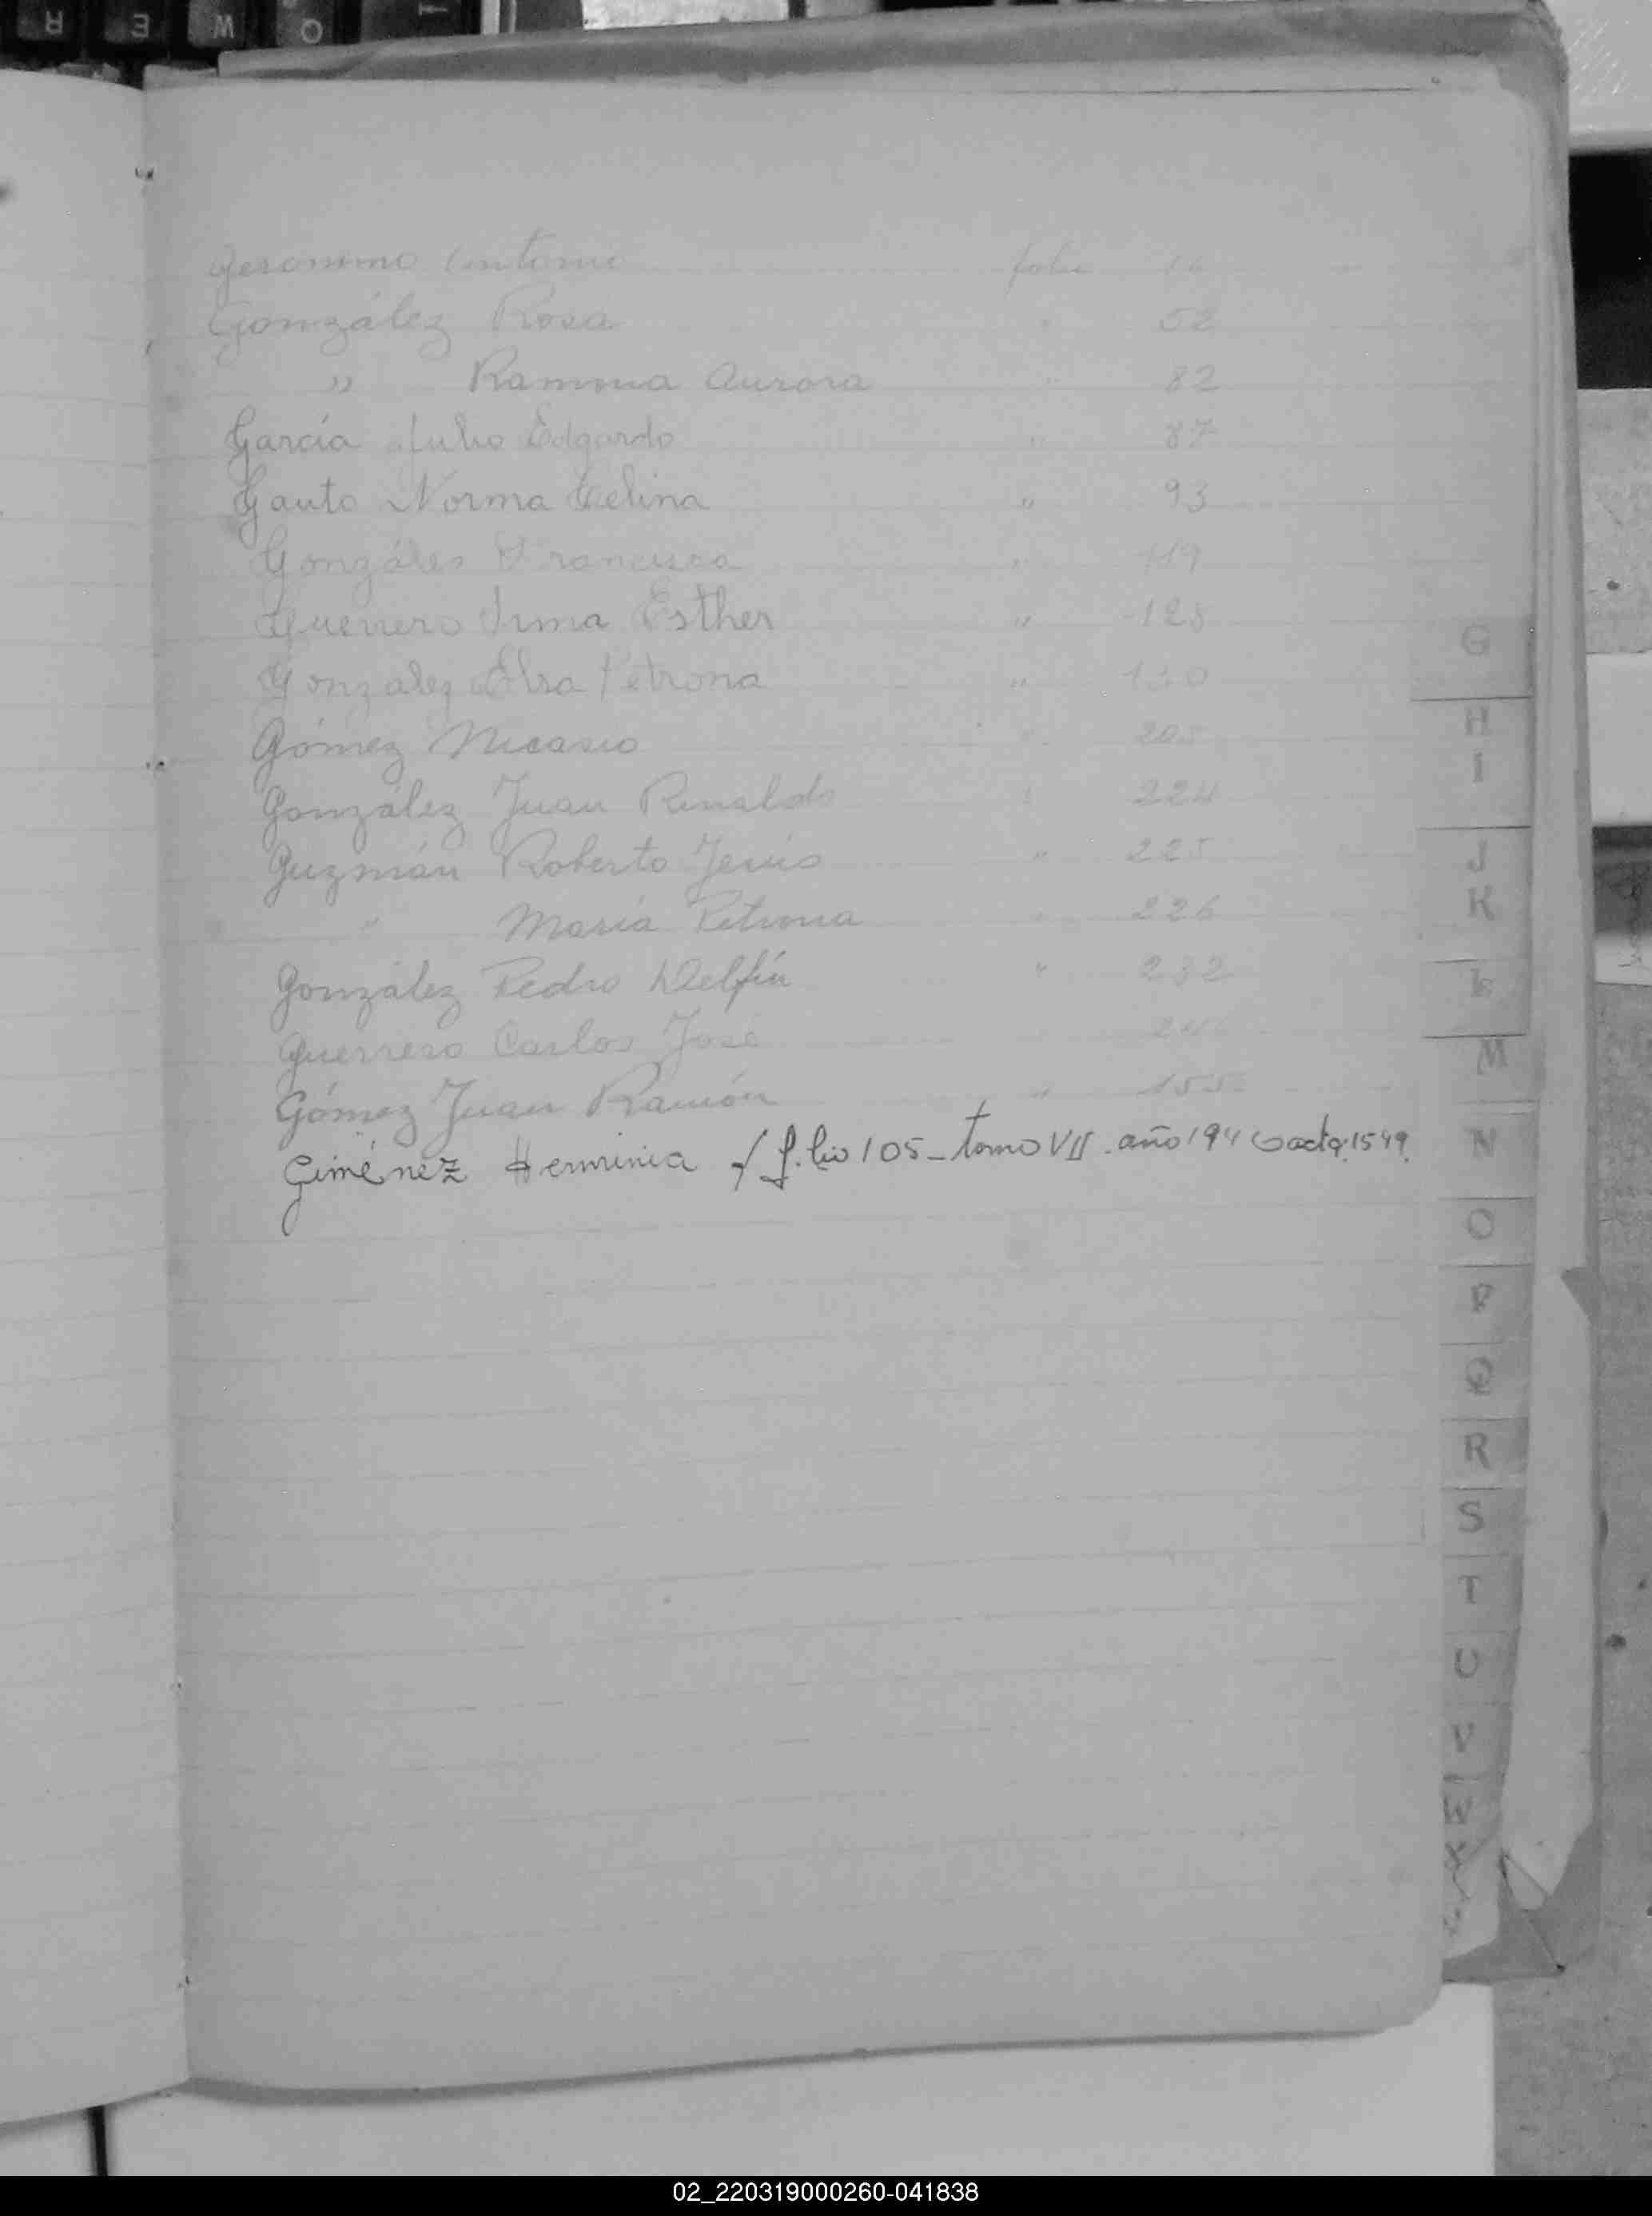 Geronimo Antonio folio 16
González Rosa " 52
" Ramona Aurora " 82
García Julio Edgardo " 87
Gauto Norma Celina " 93
Gonzáles Francisca " 119
Guerrero Irma Esther " 128
Gonzalez Elsa Petrona " 130
Gómez Nicasio " 205
González Juan Rinaldo " 224
Guzmán Roberto Jesús " 225
" María Petrona " 226
González Pedro Delfín " 232
Guerrero Carlos José
Gómez Juan Ramón " 155
Giménez Herminia folio 105 - tomo VII - año 194 acta 1549
G
H
I
J
K
L
M
N
O
P
Q
R
S
T
U
V
W
X
R E W Q
02_220319000260-041838